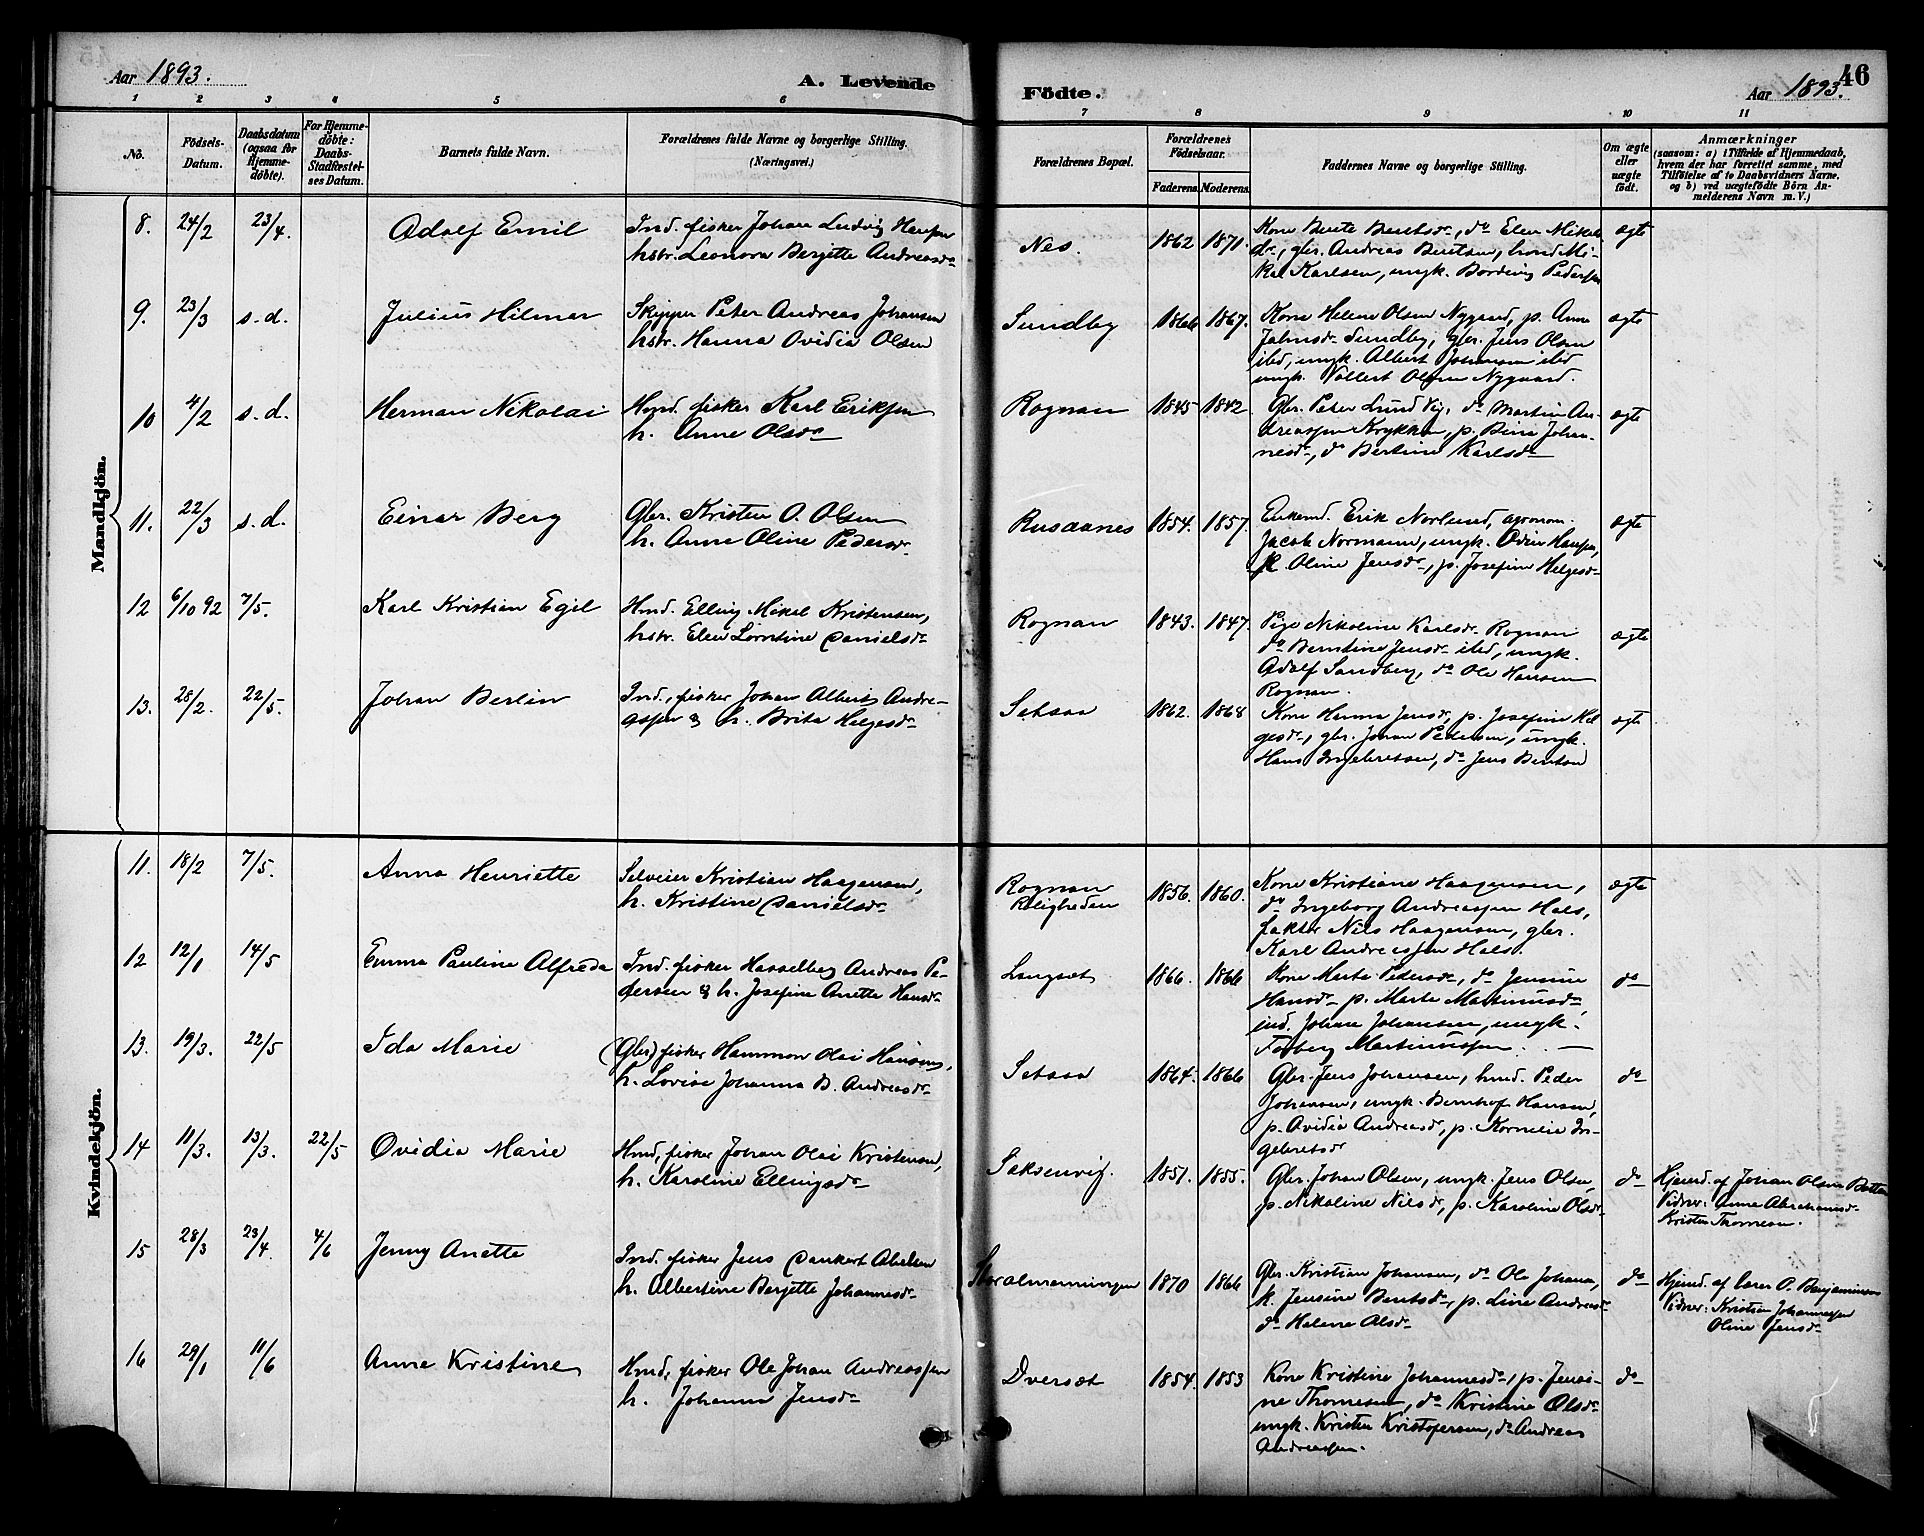 Aar 1893.
A. Levende
Födte.
Aar 1893.
46
1 2 3 4 5 6
7 8 9 10 11
No.
Födsels-
Datum.
Daabsdatum
(ogsaa for
Hjemme-
döbte).
For Hjemme-
döbte:
Daabs-
Stadfæstel-
ses Datum.
Barnets fulde Navn.
Forældrenes fulde Navne og borgerlige Stilling.
(Næringsvei.)
Forældrenes Bopæl.
Forældrenes
Födselsaar.
Faderens.
Moderens.
Faddernes Navne og borgerlige Stilling.
Om ægte
eller
uægte
födt.
Anmærkninger
(saasom: a) i Tilfælde af Hjemmedaab,
hvem der har forrettet samme, med
Tilföielse af to Daabsvidners Navne,
og b) ved uægtefödte Börn An-
melderens Navn m. V.)
Mandkjön.
8. 24/2 23/4. Adolf Emil
Ind. fisker Johan Ludvig Hansen
hstr. Leonora Bergitte Andreasdr
Nes. 1862 1871.
Kone Berete Berntsdr, do Elen Mikals
dr, gbr. Andreas Berntsen, hmd Mi-
kal Karlsen, ungk. Bording Pedersen
ægte
9. 23/3 s.d. Julius Hilmar
Skipper Peter Andreas Johansen
hstr. Hanna Ovidia Olsen
Sundby 1866 1867.
Kone Helene Olsen Nygaard, p. Anne
Jakobsdr Sundby, gbr. Jens Olsen
ibd, ungk. Albert Johansen ibd
ungk. Vollert Olsen Nygaard.
ægte
10 4/2 s.d. Herman Nikolai
Hmd. fisker Karl Eriksen
h. Anne Olsdr
Rognan 1845 1842.
Gbr. Peter Lund Vig, do Martin An-
dreassen Krykkan, p. Bina Johan-
nesdr, do Bertine Karlsdr
ægte
11. 22/3 s.d. Einar Berg
Gbr. Kristen O. Olsen
h. Anne Oline Pedersdr
Rusaanes 1854. 1857.
Enkemd. Erik Norlund, agronom
Jacob Normann, ungk. Odin Hansen,
k. Oline Jensdr, p. Josefine Helgesdr
ægte
12 6/10 92 7/5. Karl Kristian Egil
Hmd. Elling Mikal Kristensen,
hstr. Elen Lorntine Danielsdr
Rognan 1843. 1847.
Pige Nikoline Karlsdr Rognan
do Berntine Jensdr ibd, ungk.
Adolf Sandberg, do Ole Hansen
Rognan.
ægte
13. 28/2. 22/5. Johan Berlin
Ind., fisker Johan Albert Andre-
assen & h. Brita Helgesdr
Setsaa 1862. 1868
Kone Hanna Jensdr, p. Josefine Hel
gesdr, gbr. Johan Pedersen, ungk.
Hans Ingebretsen, do Jens Berntsen
ægte
Kvindekjön.
11. 18/2 7/5. Anna Henriette
Selveier Kristian Haagensen,
h. Kristine Danielsdr
Rognan
Roligheden
1856. 1860.
Kone Kristiane Haagensen,
do Ingeborg Andreassen Hals,
faktor Nils Haagensen, gbr.
Karl Andreassen Hals.
ægte
12 12/1 14/5 Emma Pauline Alfreda
Ind. fisker Hasselberg Andreas Pe-
dersen & h. Josefine Anette Hansdr
Langset 1866. 1866
Kone Marta Pedersdr, do Jensine
Hansdr p. Marta Martinusdr,
ind. Johan Johansen, ungk.
Torberg Martinussen.
do
13. 19/3. 22/5 Ida Marie
(Gbr) fisker Hammon Olai Hansen,
h. Lovise Johanna B. Andreasdr
Setsaa 1864. 1866
Gbr. Jens Johansen, hmd. Peder
Johansen, ungk. Bernhof Hansen,
p. Ovidia Andreasdr, p. Kornelie In-
gebretsdr
do
14 11/3. 13/3. 22/5 Ovidia Marie
Hmd, fisker Johan Olai Kristensen,
h. Karoline Ellingsdr
Saksenvig. 1851. 1855.
Gbr. Johan Olsen, ungk. Jens Olsen,
p. Nikoline Nilsdr, p. Karoline Olsdr
do
Hjemd. af Johan Olsen Botten
Vidner: Anne Abrahamsdr
Kristen Thomesen.
15 28/3 23/4. 4/6 Jenny Anette
Ind. fisker Jens Dankert Abelsen
h. Albertine Bergitte Johannesdr
Storalmenningen 1870 1866
Gbr. Kristian Johansen, do Ole Johans,
k. Jensine Berntsdr, p. Line Andreasdr
do Helene Alsdr
do
Hjemd. af Lars O. Benjaminsen
Vidner: Kristian Johannessen
Oline Jensdr
16 29/1 11/6 Anna Kristine
Hmd, fisker Ole Johan Andreassen
h. Johanna Jensdr
Dverset 1854. 1853
Kone Kristine Johannesdr, p. Jensi-
ne Thomesen, do Kristine Olsdr
ungk. Kristen Kristofersen, do Andreas
Andreassen.
do